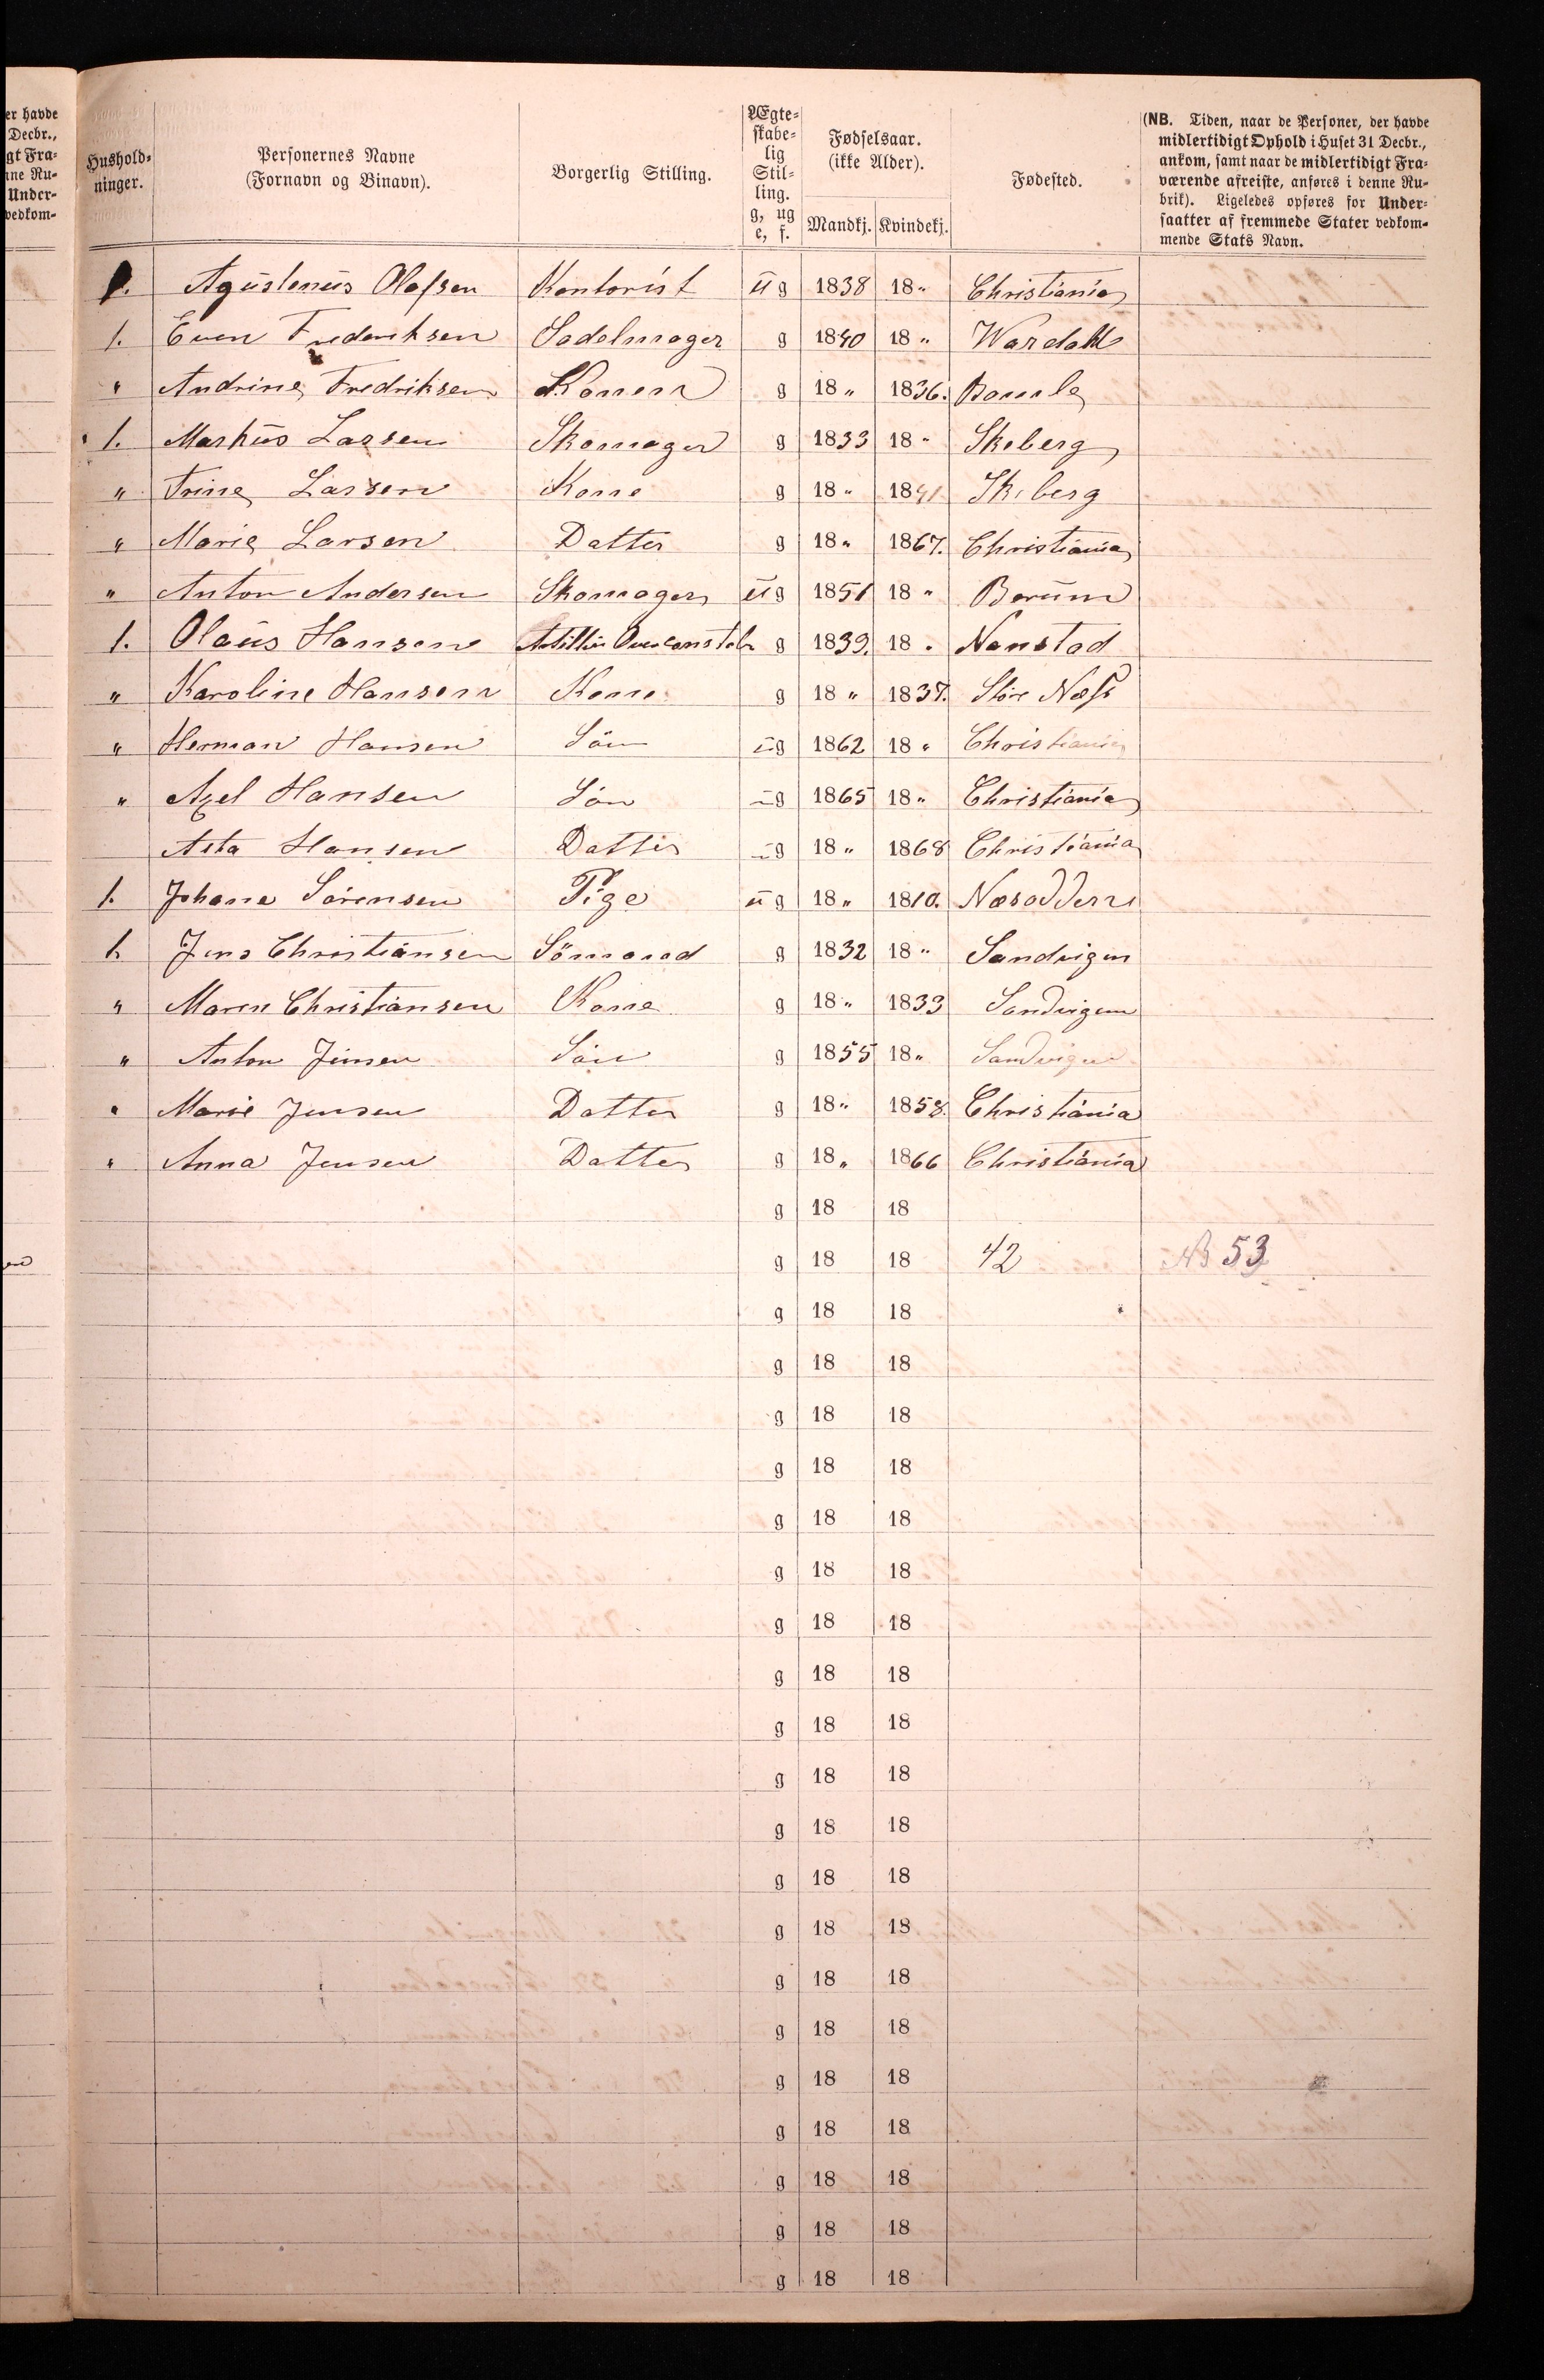 er havde
Decbr.,
gt Fra-
nne Ru-
Under-
vedkom-
Hushold-
ninger.
Personernes Navne
(Fornavn og Binavn).
Borgerlig Stilling.
Ægte-
skabe-
lig
Stil-
ling.
g, ug
e, f.
Fødselsaar.
(ikke Alder).
Mandkj. Kvindekj.
Fødested.
(NB. Tiden, naar de Personer, der havde
midlertidigt Ophold i Huset 31 Decbr.,
ankom, samt naar de midlertidigt Fra-
værende afreiste, anføres i denne Ru-
brik). Ligeledes opføres for Under-
saatter af fremmede Stater vedkom-
mende Stats Navn.
1. Agustenus Olafsen Kontorist ug 1838 18 " Christiania
1. Even Frederiksen Sadelmager g 1840 18 " Wardahl
" Andrine Fredriksen Konen g 18 " 1836. Bamle
1. Markus Larsen Skomager g 1833 18 " Skeberg
" Trine Larsen Kone g 18 " 1841 Skeberg
" Marie Larsen Datter g 18 " 1867. Christiania
" Anton Andersen Skomager ug 1851 18 " Berum
1. Olaus Hansen Artilleri Overconstabl g 1839. 18 " Nanstad
" Karoline Hansen Kone g 18 " 1837. Store Næss
" Herman Hansen Sön ug 1862 18 " Christiania
" Axel Hansen Sön ug 1865 18 " Christiania
Asta Hansen Datter ug 18 " 1868 Christiania
1. Johane Sörensen Pige ug 18 " 1810. Næsodden
1. Jens Christiansen Sömand g 1832 18 " Sandvigen
" Maren Christiansen Kone g 18 " 1833 Sandvigen
" Anton Jensen Sön g 1855 18 " Sandvigen
" Marie Jensen Datter g 18 " 1858. Christiania
" Anna Jensen Datter g 18 " 1866 Christiania
g 18 18
g 18 18 42 No 53
g 18 18
g 18 18
g 18 18
g 18 18
g 18 18
g 18 18
g 18 18
g 18 18
g 18 18
g 18 18
g 18 18
g 18 18
g 18 18
g 18 18
g 18 18
g 18 18
g 18 18
g 18 18
g 18 18
g 18 18